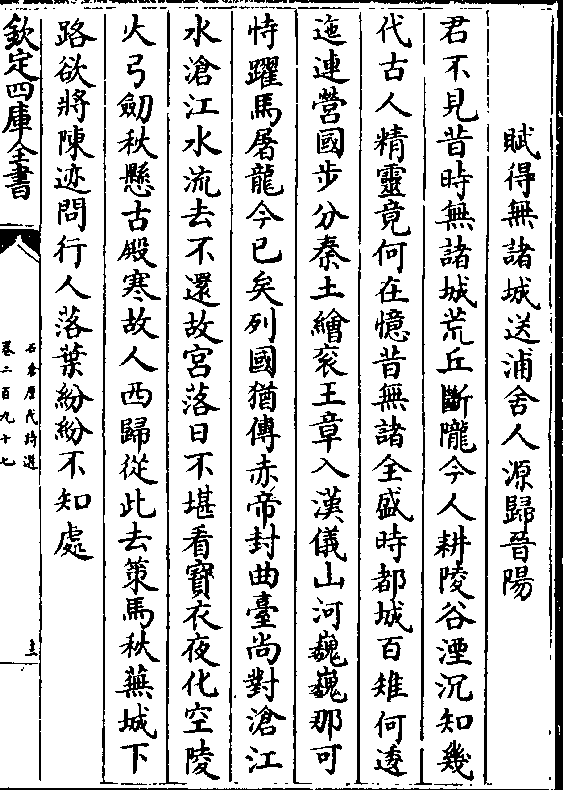 賦得無諸城送浦舍人源歸晉陽
君不見昔時無諸城荒丘斷隴今人耕陵谷湮沉知幾
代古人精靈竟何在憶昔無諸全盛時都城百雉何逶
迤連營國步分秦土繪衮王章入漢儀山河巍巍那可
恃躍馬屠龍今已矣列國猶傳赤帝封曲臺尚對滄江
水滄江水流去不還故宮落日不堪看寶衣夜化空陵
火弓劒秋懸古殿寒故人西歸從此去策馬秋蕪城下
路欲將陳迹問行人落葉紛紛不知處
欽定四庫全書
石倉歷代詩選
卷二百九十七